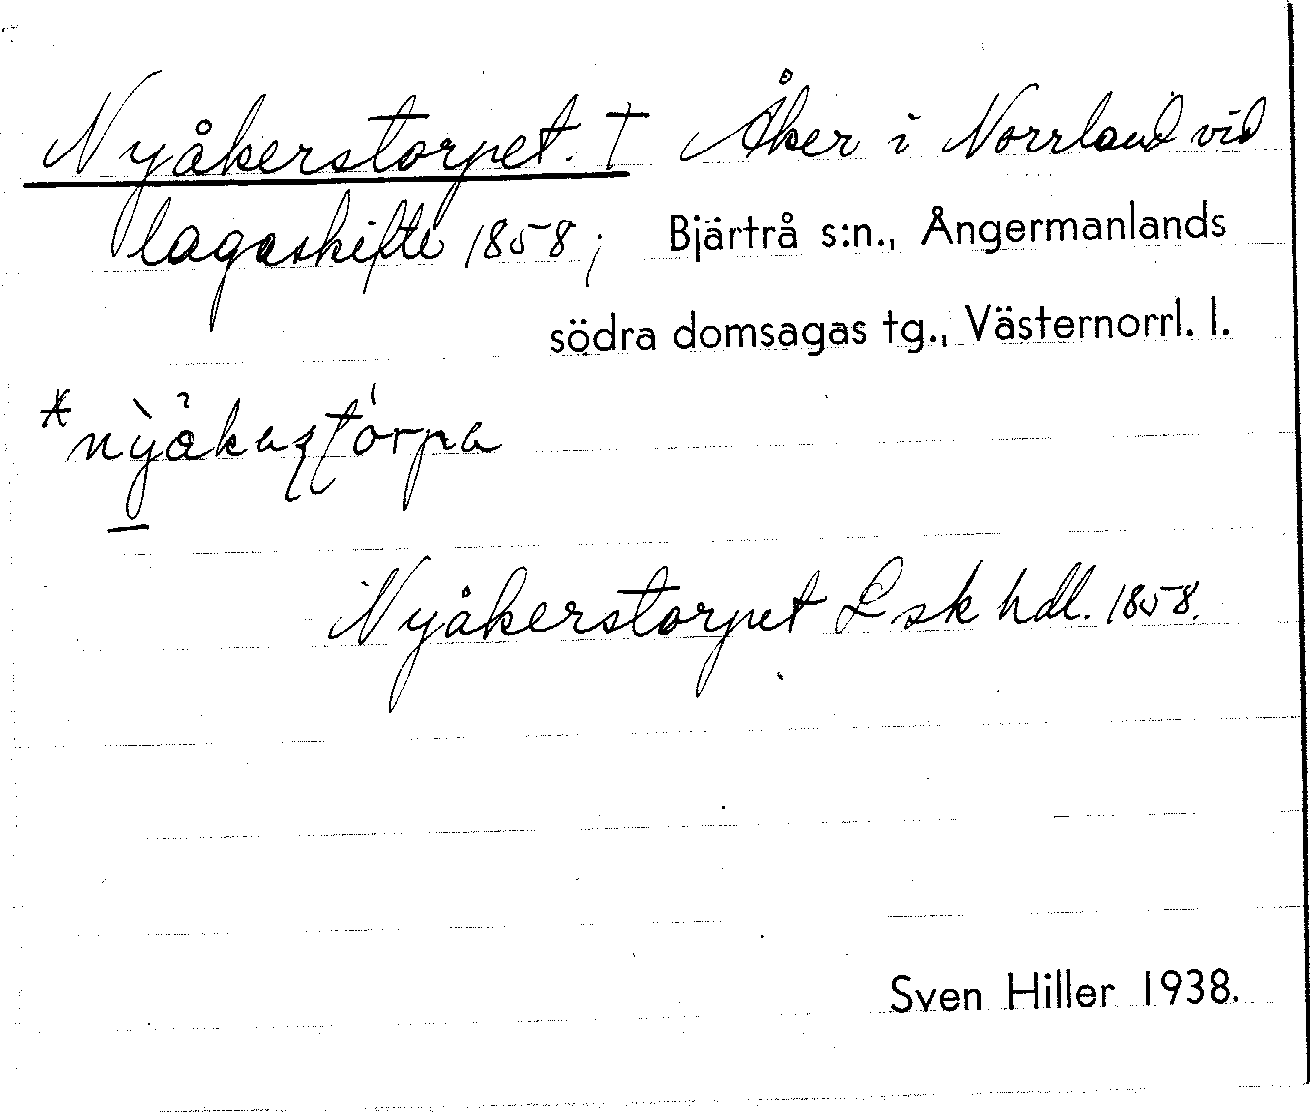 Nyåkerstorpet. † Åker i Norrland vid
lagaskifte 1858; Bjärtrå s:n., Ångermanlands
södra domsagas tg., Västernorrl. l.
Nyåkerstorpet Lsk hdl. 1858.
Sven Hiller 1938.